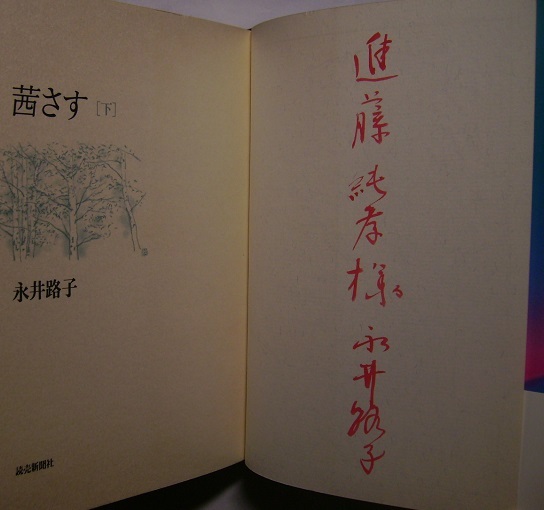 茜さす[下]
永井路子
読売新聞社
進藤純孝様
永井路子